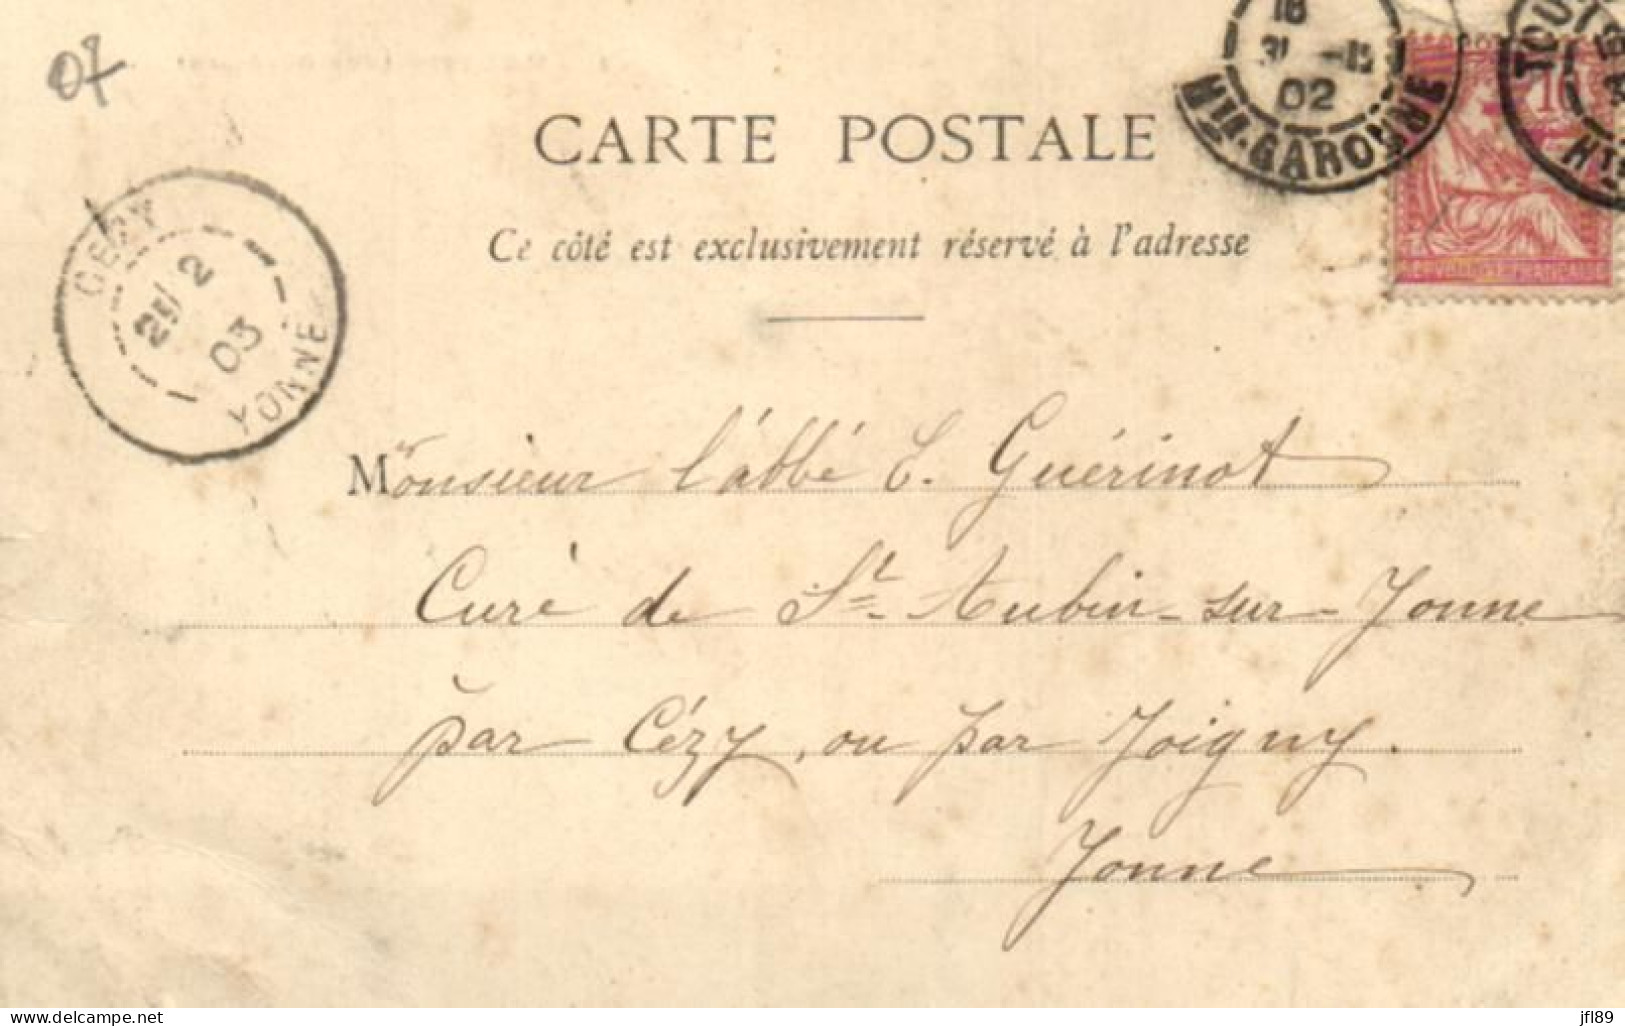 07
CARTE POSTALE
Ce côté est exclusivement réservé à l'adresse
CEZY
25/2
03
YONNE
18
02
Hte GARONNE
TOU
10
Hte
Monsieur l'abbé E. Guérinot
Curé de St-Aubin-sur-Yonne
par Cézy, ou par Joigny.
Yonne
www.delcampe.net
jfl89